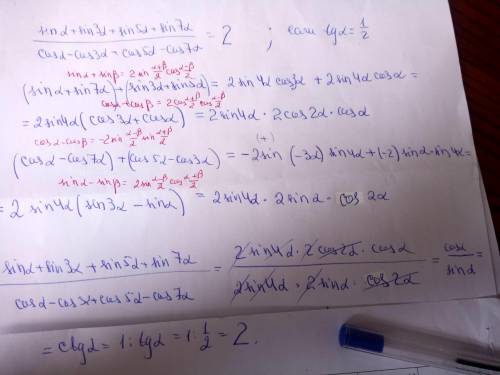 sinα+sin3α+sin5α+sin7α
cosα-cos3α+cos5α-cos7α
= 2 ; если tgα = 1/2
sinα+sinβ = 2sin (α+β)/2 cos (α-β)/2
(sinα+sin7α)+(sin3α+sin5α) = 2sin4α cos3α + 2sin4α cosα =
cosα+cosβ = 2cos (α+β)/2 cos (α-β)/2
= 2sin4α(cos3α+cosα) = 2sin4α·2cos2α·cosα
cosα-cosβ = -2sin (α-β)/2 sin (α+β)/2
(+)
(cosα-cos7α)+(cos5α-cos3α) = -2sin(-3α)sin4α+(-2)sinα·sin4α =
sinα-sinβ = 2sin (α-β)/2 cos (α+β)/2
= 2sin4α(sin3α-sinα) = 2sin4α·2sinα·cos2α
sinα+sin3α+sin5α+sin7α = 2sin4α·2cos2α·cosα = cosα =
cosα-cos3α+cos5α-cos7α 2sin4α·2sinα·cos2α sinα
= ctgα = 1:tgα = 1:1/2 = 2.